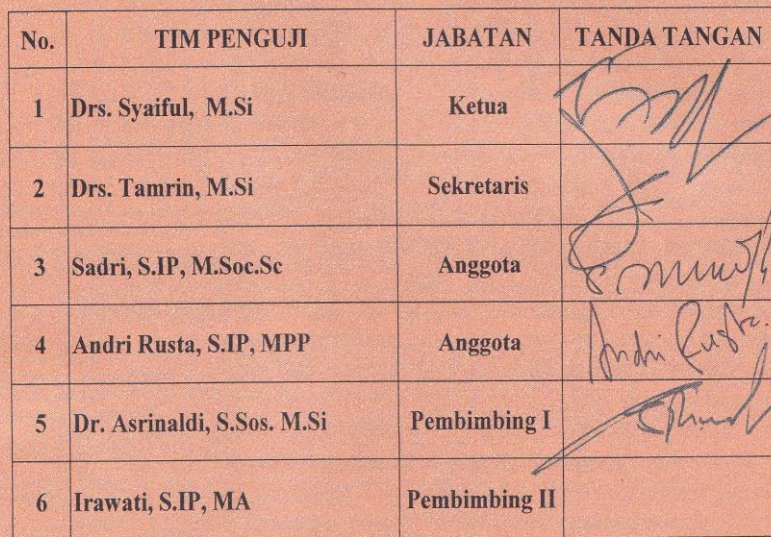 No. TIM PENGUJI JABATAN TANDA TANGAN
1 Drs. Syaiful, M.Si Ketua
2 Drs. Tamrin, M.Si Sekretaris
3 Sadri, S.IP, M.Soc.Sc Anggota
4 Andri Rusta, S.IP, MPP Anggota Andri Rusta.
5 Dr. Asrinaldi, S.Sos. M.Si Pembimbing I
6 Irawati, S.IP, MA Pembimbing II